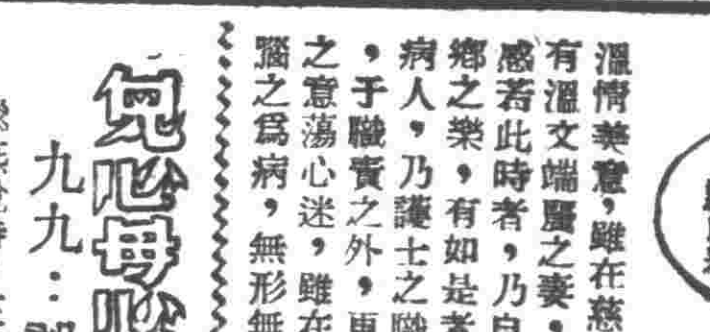 溫情美意，雖在慈
有溫文端麗之妻，
感若此時者，乃自
鄉之樂，有如是者
病人，乃護士之職
，于職責之外，更
之意蕩心迷，雖在
腦之爲病，無形無
兒心母心
九九：